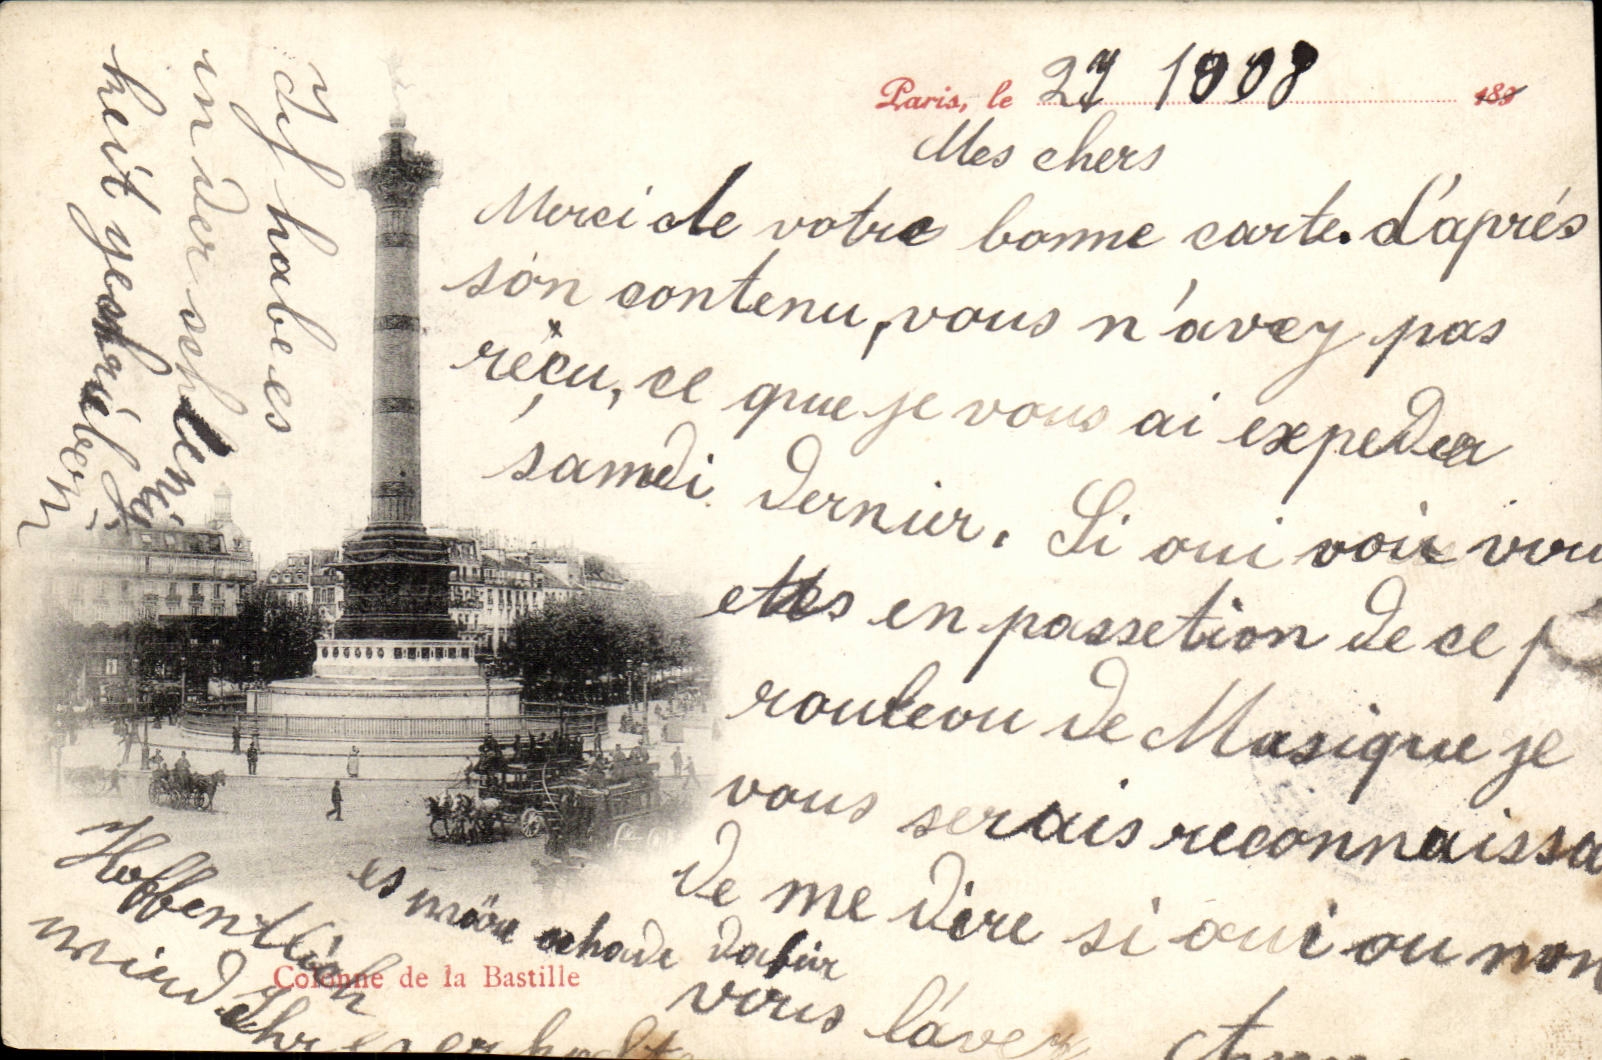 Paris, le 27 1908 189
Mes chers
Merci de votre bonne carte. d'aprés
son contenu, vous n'avez pas
réçu, ce que je vous ai expedier
samedi dernier. Si oui voir vou
etes en passetion de ce p
rouleou de Musique je
vous serais reconnaissa
de me dire si oui ou non
vous l'avez
Ich habe es
in der schlenig
keit geschrieben
Hoffentlich
wird Ihr es erhalte
es wäre schade dafür
Colonne de la Bastille